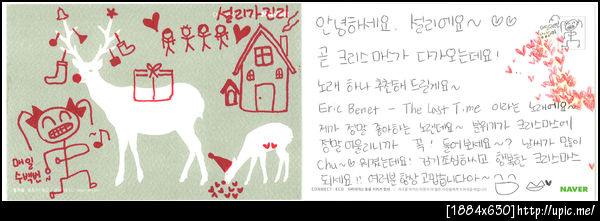 설리가진리
매일
수백번~
안녕하세요. 설리에요~
곧 크리스마스가 다가오는데요!
노래 하나 추천해 드릴게요!
Eric Benet - The Last Time 이라는 노래에요~
제가 정말 좋아하는 노랜데요~ 분위기가 크리스마스에
정말 어울리니까 꼭! 들어보세요~? 날씨가 많이
Chu~ 워졌는데요! 감기조심하시고 행복한 크리스마스
되세요!! 여러분 항상 고맙습니다아~
NAVER
[1884x630] http://upic.me/